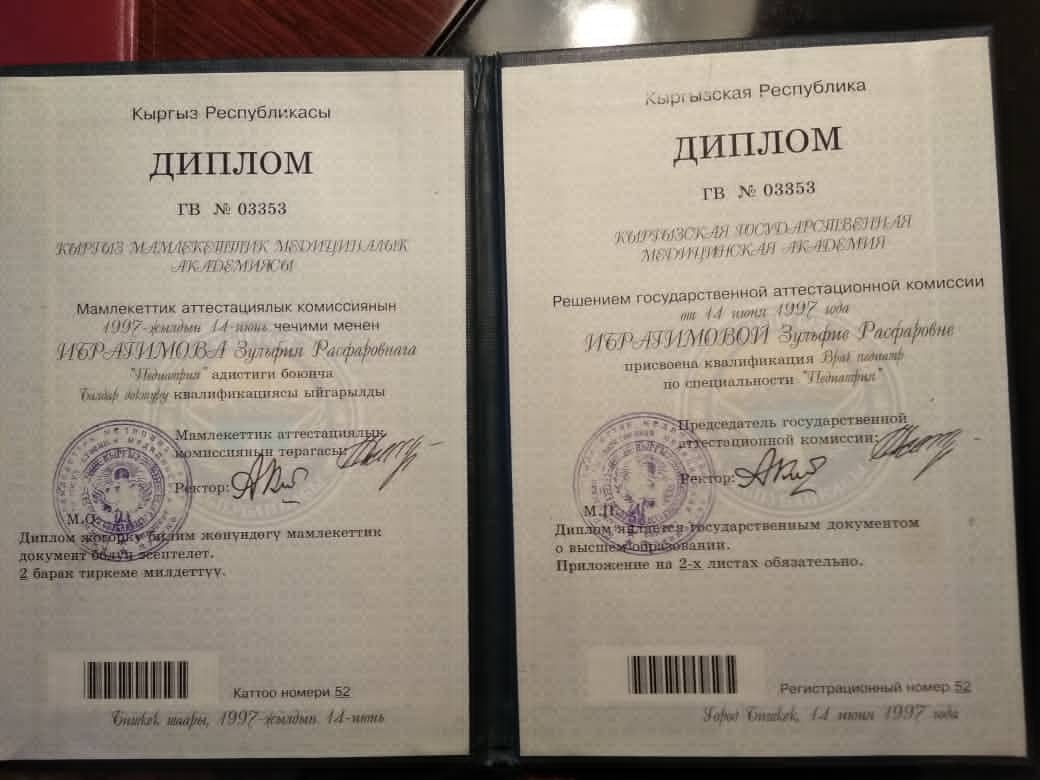 Кыргыз Республикасы
ДИПЛОМ
ГВ № 03353
КЫРГЫЗ МАМЛЕКЕТТИК МЕДИЦИНАЛЫК
АКАДЕМИЯСЫ
Мамлекеттик аттестациялык комиссиянын
1997-жылдын 14-июнь чечими менен
ИБРАГИМОВА Зульфия Расфаровнага
"Педиатрия" адистиги боюнча
Балдар доктуру квалификациясы ыйгарылды
Мамлекеттик аттестациялык
комиссиянын төрагасы:
Ректор:
М.О.
Диплом жогорку билим жөнүндөгү мамлекеттик
документ болуп эсептелет.
2 барак тиркеме милдеттүү.
Каттоо номери 52
Бишкек шаары, 1997-жылдын 14-июнь
Кыргызская Республика
ДИПЛОМ
ГВ № 03353
КЫРГЫЗСКАЯ ГОСУДАРСТВЕННАЯ
МЕДИЦИНСКАЯ АКАДЕМИЯ
Решением государственной аттестационной комиссии
от 14 июня 1997 года
ИБРАГИМОВОЙ Зульфие Расфаровне
присвоена квалификация Врач педиатр
по специальности "Педиатрия"
Председатель государственной
аттестационной комиссии:
Ректор:
М.П.
Диплом является государственным документом
о высшем образовании.
Приложение на 2-х листах обязательно.
Регистрационный номер 52
Город Бишкек, 14 июня 1997 года